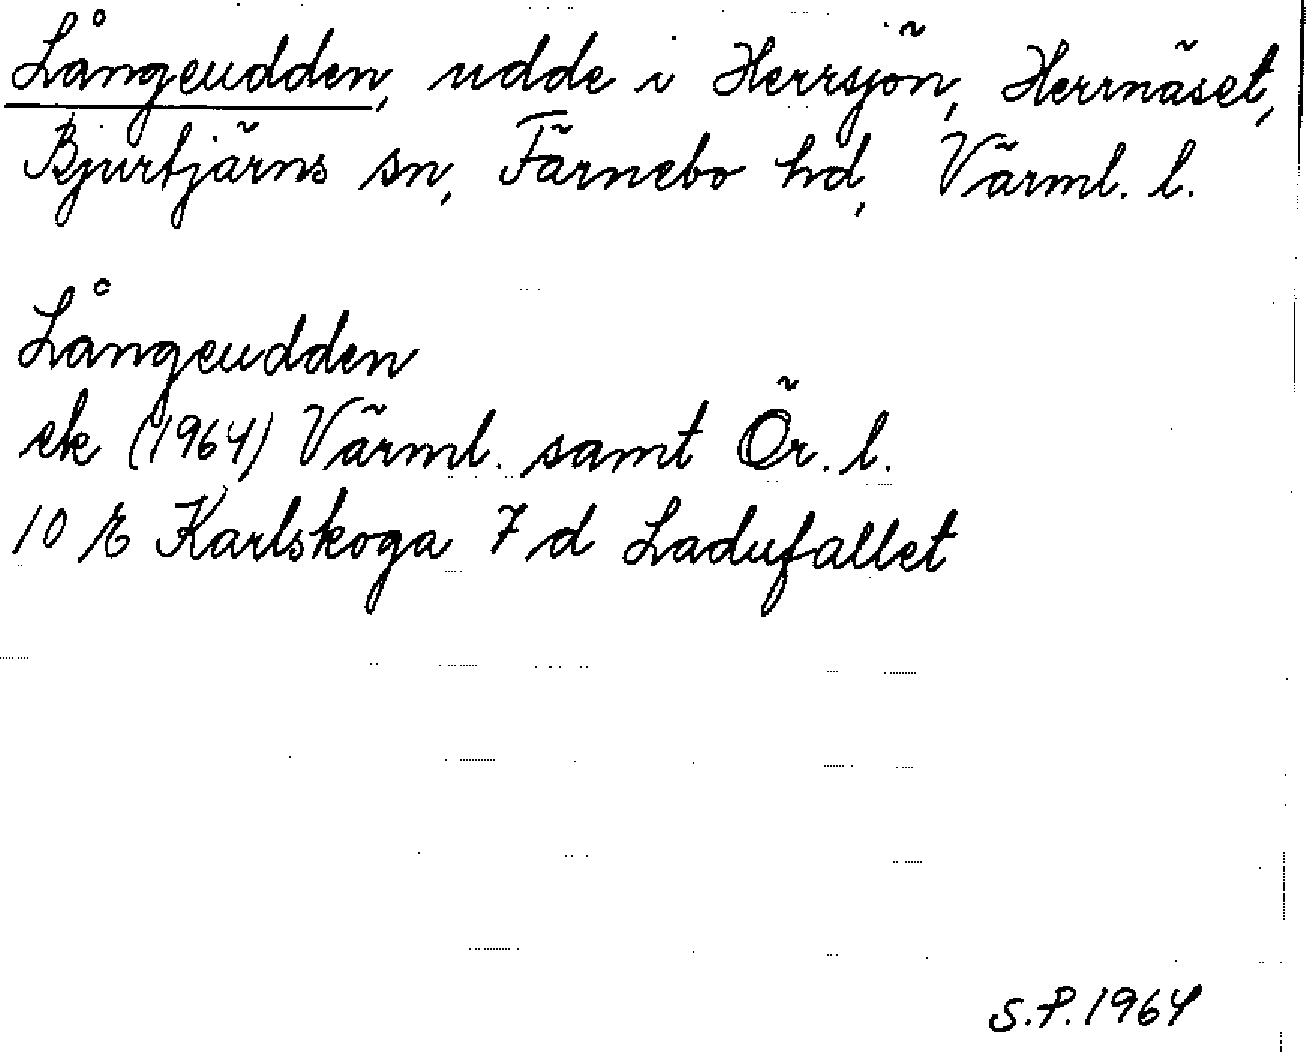 Långeudden, udde i Herrsjön, Herrnäset,
Bjurtjärns sn, Färnebo hd, Värml. l.
Långeudden
ek (1964) Värml. samt Ör. l.
10 E Karlskoga 7 d Ladufallet
S.P. 1964